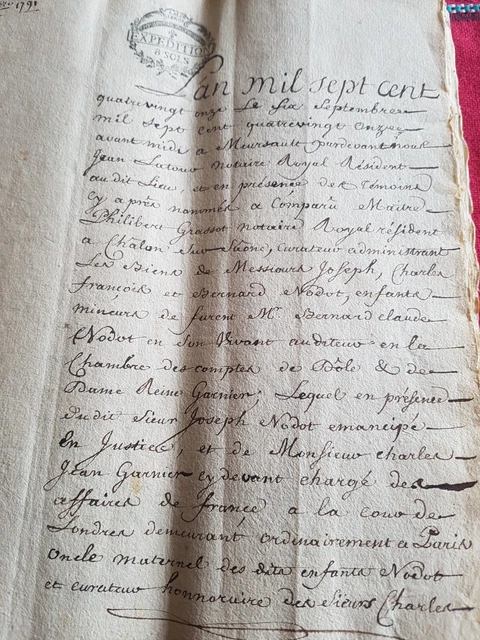 1791
EXPEDITION
8 SOLS
L'an mil sept cent
quatrevingt onze Le six Septembre
mil sept cent quatrevingt onze
avant midi a Meursault pardevant nous
Jean Latour notaire Royal Résident
audit Lieu, et en présence des Témoins
cy après nommés a Comparu Maitre
Philibert Grassot notaire Royal résident
a Chalon Sur Sione, curateur administrant
Les Biens de Messieurs Joseph, Charles
françois et Bernard Nodot, enfants
mineurs de furent Mr. Bernard claude
Nodot en Son Vivant auditeur en la
Chambre des comptes de Dôle & de
Dame Reine Garnier; Lequel en présence
dudit Sieur Joseph Nodot emancipé
En Justice, et de Monsieur charles
Jean Garnier cy devant chargé des
affaires de france a la cour de
Londres demeurant ordinairement a Paris
oncle maternel des dits enfants Nodot
et curateur honnoraire des Sieurs Charles